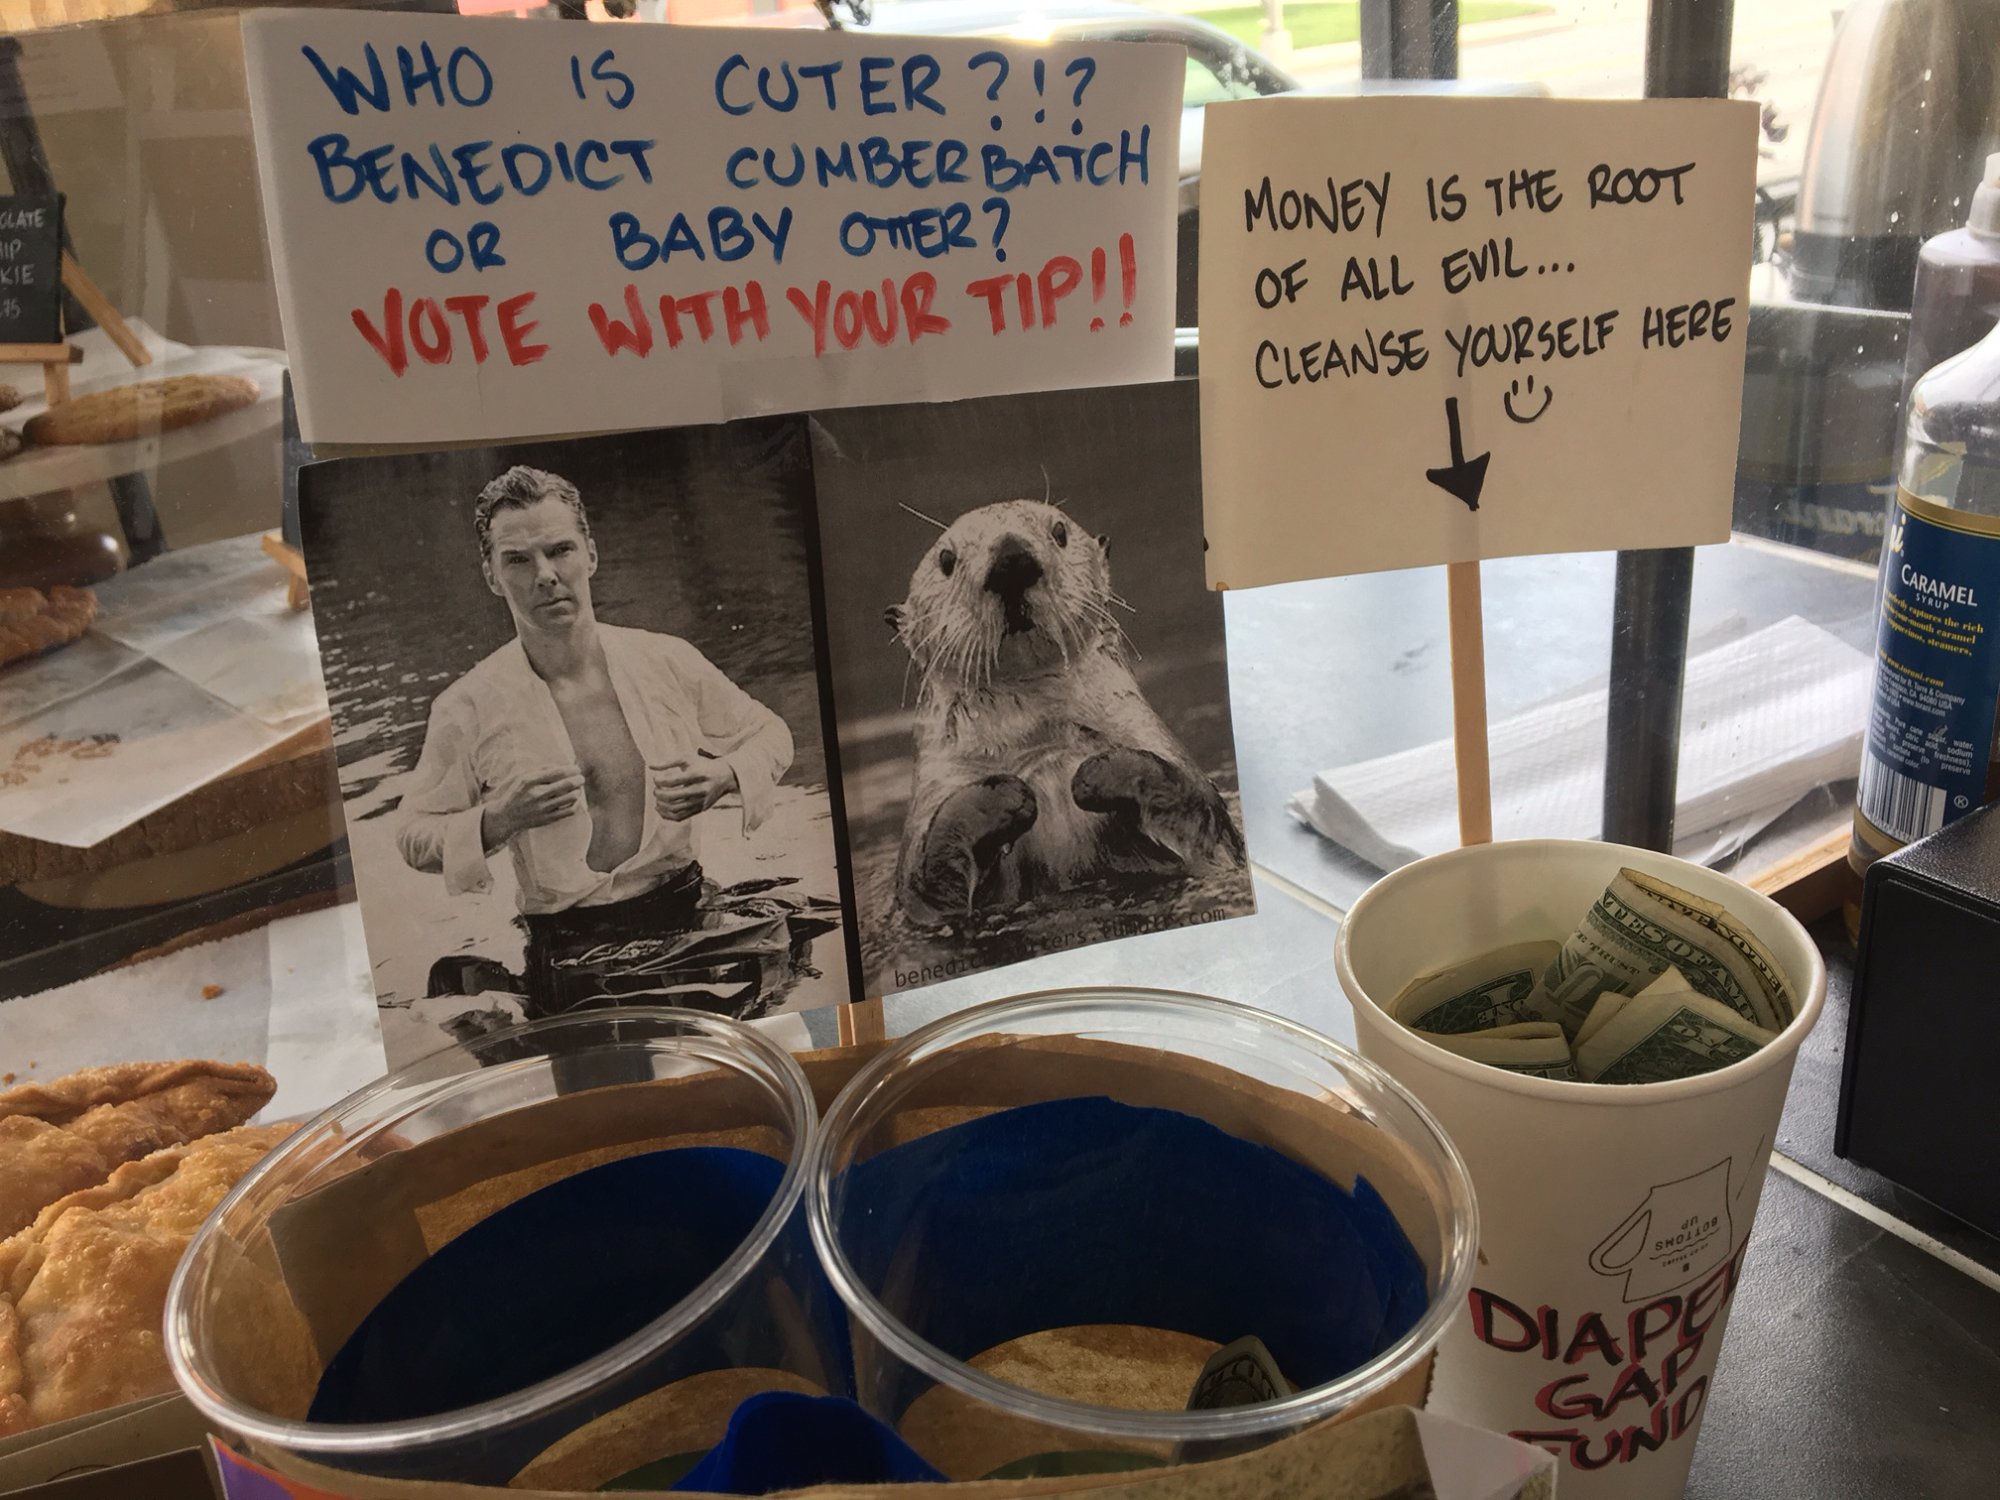 WHO IS CUTER?!?
BENEDICT CUMBERBATCH
OR BABY OTTER?
VOTE WITH YOUR TIP!!
MONEY IS THE ROOT
OF ALL EVIL...
CLEANSE YOURSELF HERE
CARAMEL
SYRUP
BOTTOMS
UP
DIAPER
GAP
FUND